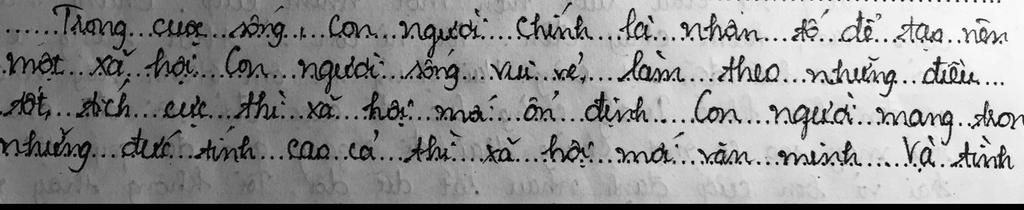 Trong cuộc sống, con người chính là nhân tố để tạo nên
một xã hội. Con người sống vui vẻ, làm theo những điều
tốt, tích cực thì xã hội mới ổn định. Con người mang tron
những đức tính cao cả thì xã hội mới văn minh. Và tình